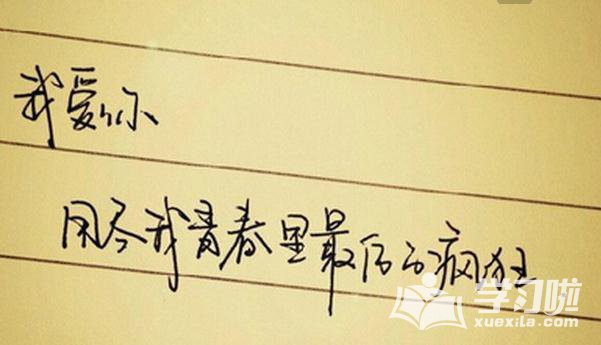 我爱你
用尽我青春里最后的疯狂
学习啦
xuexila.com